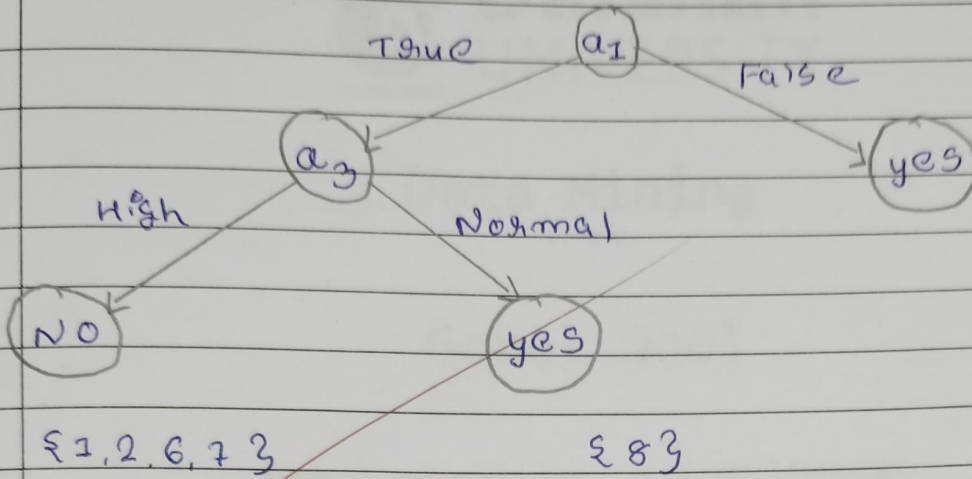 a1
True
False
a3
yes
High
Normal
NO
yes
{1, 2, 6, 7}
{8}